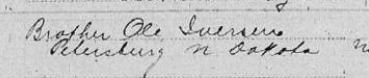 Brother Ole Iversen
Petersburg N Dakota